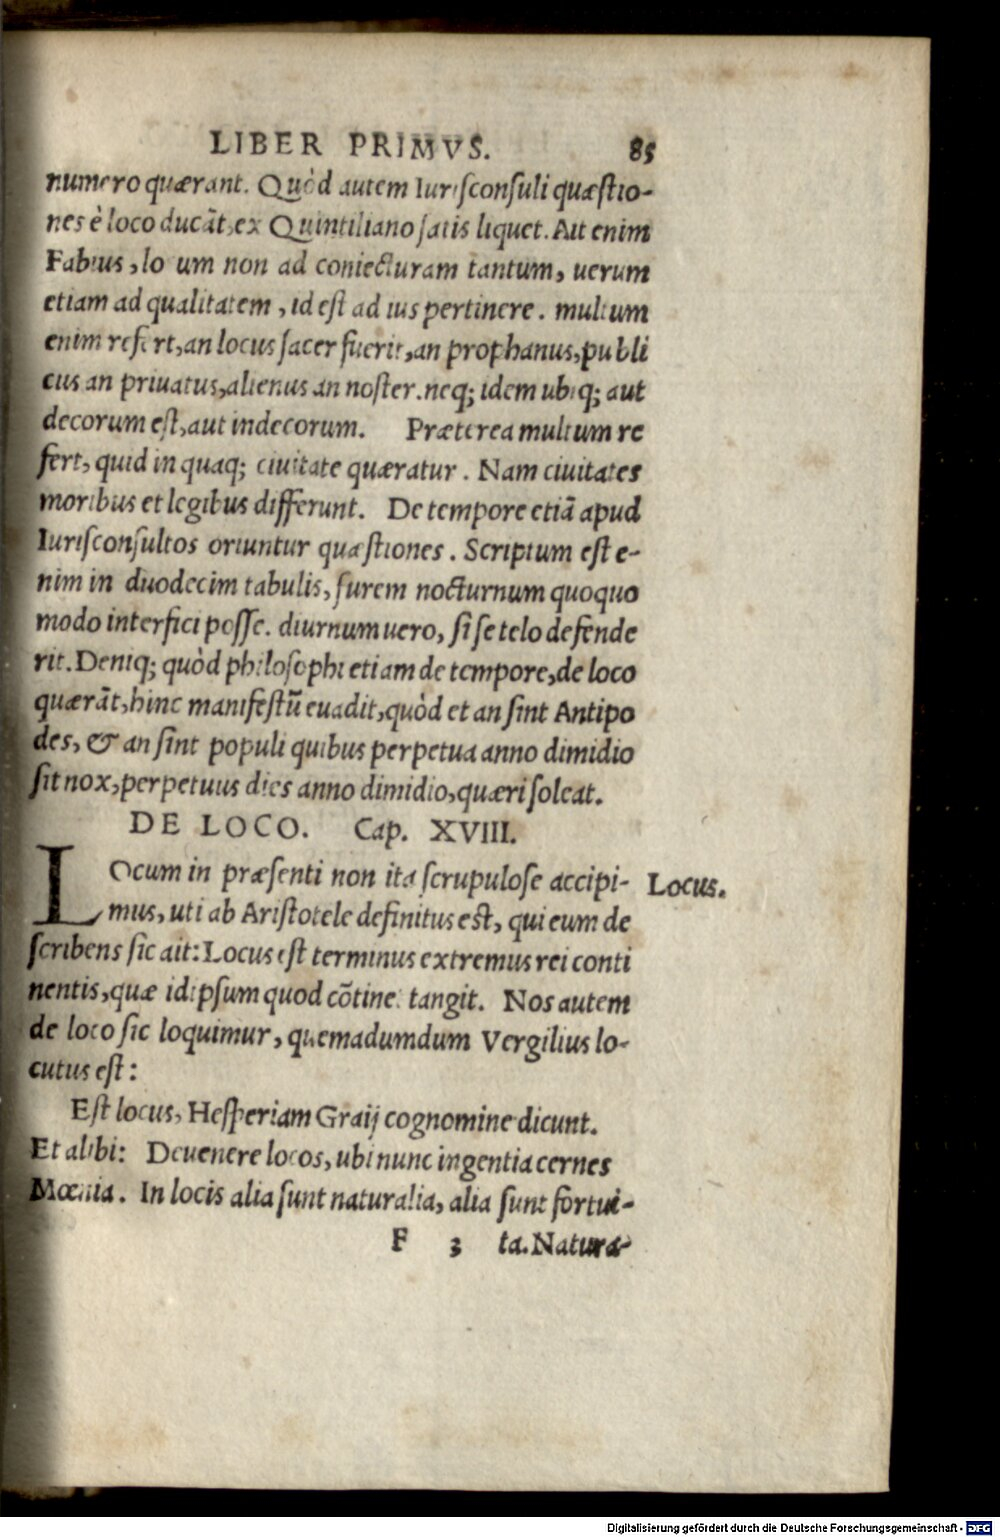 LIBER PRIMVS. 85
numero quærant. Quòd autem Iurisconsuli quæstio-
nes è loco ducãt, ex Quintiliano satis liquet. Ait enim
Fabius, lo um non ad coniecturam tantum, uerum
etiam ad qualitatem, id est ad ius pertinere. multum
enim refert, an locus sacer fuerit, an prophanus, publi
cus an priuatus, alienus an noster. neq; idem ubiq; aut
decorum est, aut indecorum. Præterea multum re
fert, quid in quaq; ciuitate quæratur. Nam ciuitates
moribus et legibus differunt. De tempore etiã apud
Iurisconsultos oriuntur quæstiones. Scriptum est e-
nim in duodecim tabulis, furem nocturnum quoquo
modo interfici posse. diurnum uero, si se telo defende
rit. Deniq; quòd philosophi etiam de tempore, de loco
quærãt, hinc manifestũ euadit, quòd et an sint Antipo
des, & an sint populi quibus perpetua anno dimidio
sit nox, perpetuus dies anno dimidio, quæri soleat.
DE LOCO. Cap. XVIII.
LOcum in præsenti non ita scrupulose accipi- Locus.
mus, uti ab Aristotele definitus est, qui eum de
scribens sic ait: Locus est terminus extremus rei conti
nentis, quæ id ipsum quod cõtinet tangit. Nos autem
de loco sic loquimur, quemadumdum Vergilius lo-
cutus est:
Est locus, Hesperiam Graij cognomine dicunt.
Et alibi: Deuenere locos, ubi nunc ingentia cernes
Mœnia. In locis alia sunt naturalia, alia sunt fortui-
F 3 ta. Natura-
Digitalisierung gefördert durch die Deutsche Forschungsgemeinschaft - DFG